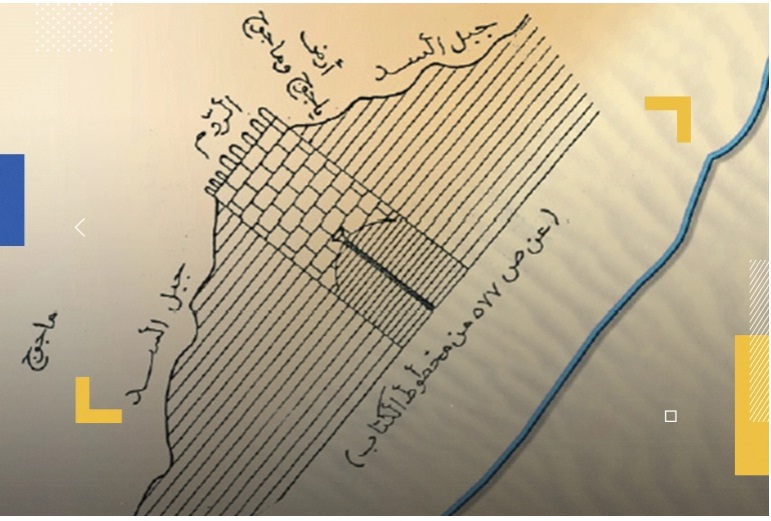 جبل السد
أرض
ياجوج وماجوج
الردم
جبل السد
ماجوج
(عن ص ٥٧٧ من مخطوط الكتاب)